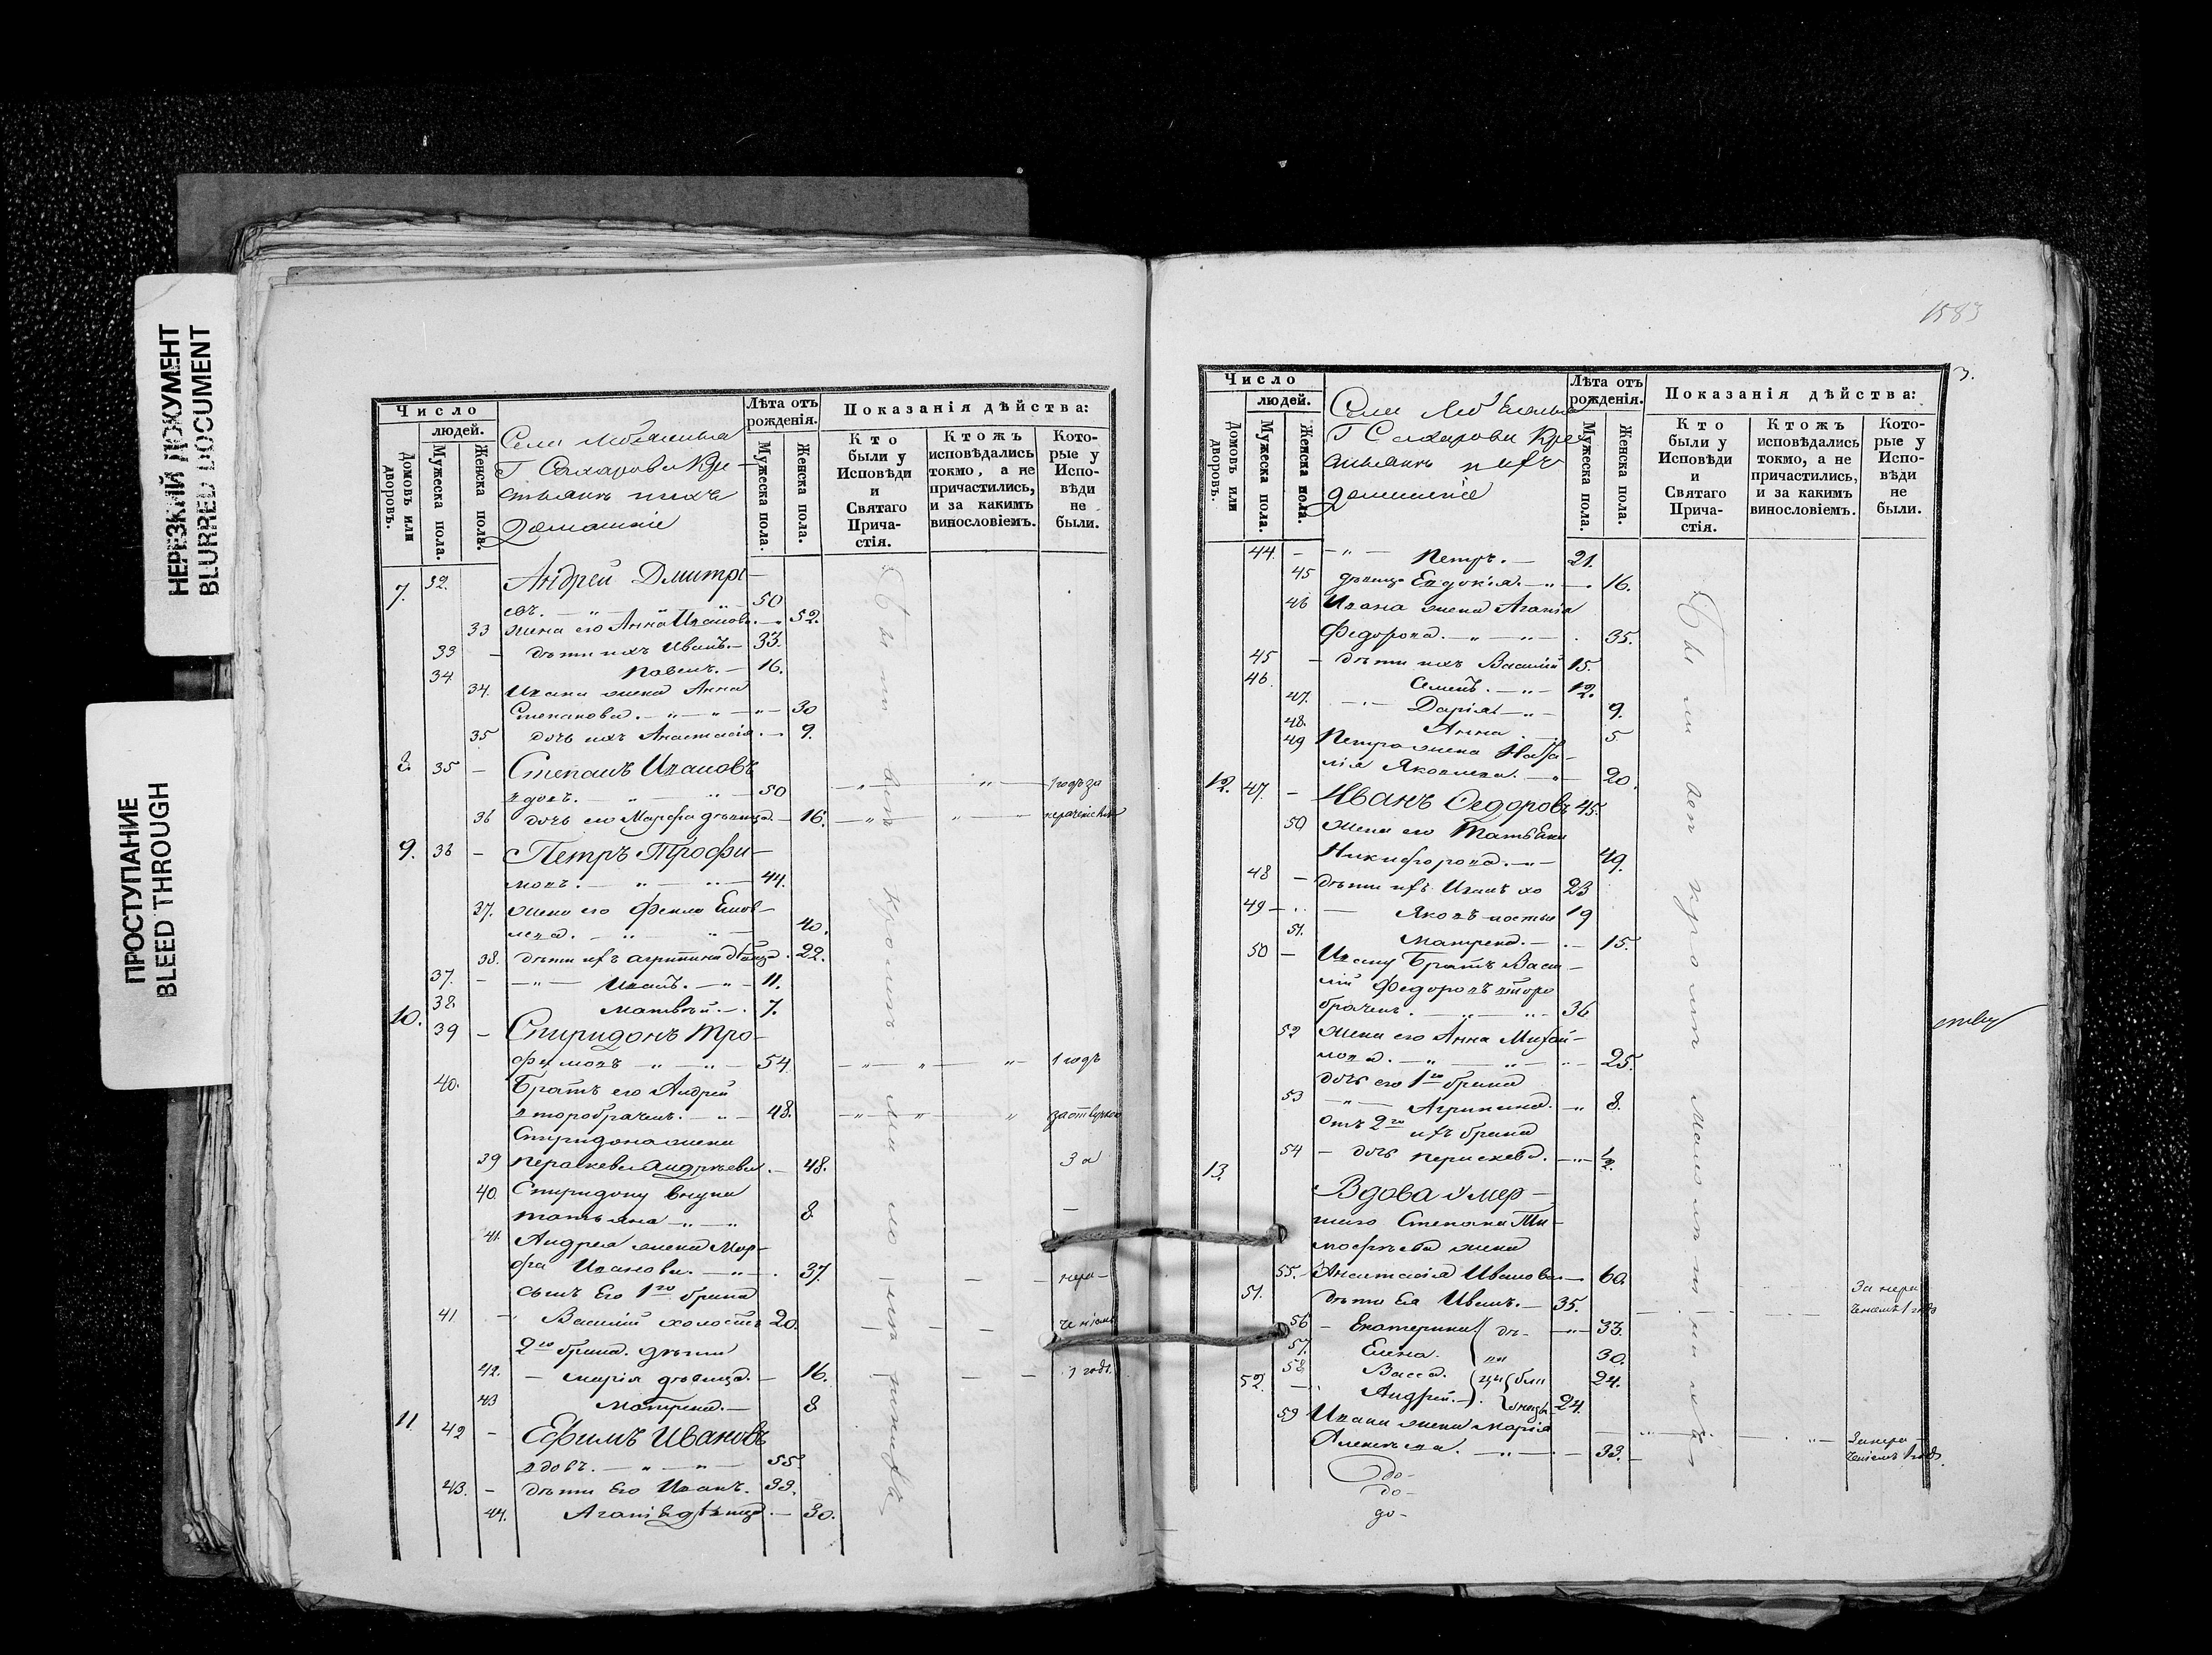 НЕРЕЗКИЙ ДОКУМЕНТ
BLURRED DOCUMENT
ПРОСТУПАНИЕ
BLEED THROUGH
Число
людей.
Домовъ или дворовъ.
Мужеска пола.
Женска пола.
Села
Г Сахарова Кре-
стьянъ ихъ
домашніе
Лѣта отъ рожденія.
Мужеска пола.
Женска пола.
Показанія дѣйства:
Кто были у Исповѣди и Святаго Причастія.
Ктожъ исповѣдались токмо, а не причастились, и за какимъ винословіемъ.
Которые у Исповѣди не были.
7. 32. Андрей Дмитрі-
евъ. — „ — „ — 50
33 жена его Анна Иванова. — 52.
33 — дѣти ихъ Иванъ. — 33.
34 Павелъ. — 16.
34. Ивана жена Анна
Степанова. — „ — „ — 30
35 дочь ихъ Анастасія. — 9.
8. 35 — Степанъ Ивановъ
вдовъ. — „ — „ — 50 — „ — „ — 1 годъ за
36 дочь его Марфа дѣвица. — 16. — „ — „ — нерачені
9. 36 — Петръ Трофи-
мовъ. — „ — „ — 44.
37. жена его Фекла
40.
38. дѣти ихъ Агрипина дѣвица. 22.
37. — „ — Иванъ. — „ — 11.
38. Матвѣй. — 7.
10. 39 — Спиридонъ Тро-
фимовъ — „ — „ — 54. — „ — „ — „ — 1 годъ
40. Братъ его Андрей
второбраченъ. — „ — 48. — „ — „ — „ за отлучкою
Спиридона жена
39 Параскева Андреева. — 48. За
40. Спиридону внука
Татьяна — „ — „ 8.
41. Андрея жена Мар-
фа Иванова. — „ — 37. — — нера-
сынъ Его 1го брака
41 — Василій холостъ 20. — — — ченіемъ
2го брака. дѣти
42. — Марія дѣвица. — 16. — — 1 годъ.
43 Матрена. — 8
11 42 — Ефимъ Ивановъ
вдовъ. — „ — „ — 55.
43. — дѣти Его Иванъ. 33.
44. Агапія дѣвица. — 30.
Были вси кромѣ малолѣтнихъ
1583
3.
Число
людей.
Домовъ или дворовъ.
Мужеска пола.
Женска пола.
Села
Г Сахарова Кре-
стьянъ ихъ
домашніе
Лѣта отъ рожденія.
Мужеска пола.
Женска пола.
Показанія дѣйства:
Кто были у Исповѣди и Святаго Причастія.
Ктожъ исповѣдались токмо, а не причастились, и за какимъ винословіемъ.
Которые у Исповѣди не были.
44. — — „ — Петръ. — 21.
45 дѣвица Евдокія. — „ — 16.
46 Ивана жена Агапія
Федорова. — „ — „ — 35.
45 — дѣти ихъ Василій 15.
46. Семенъ. — „ — 12.
47. — „ — Дарія. — „ — 9.
48. Анна 5
49 Петра жена Ната-
лія Яковлева. — „ — 20.
12. 47. — Иванъ Ѳедоровъ 45.
50 жена его Татьяна
Никифорова. — „ — 49.
48 — дѣти ихъ Иванъ хо 23
49 — „ — Яковъ лостые 19
51. Матрена. — „ — 15.
50 — Ивану Братъ Васи-
лій Федоровъ второ
браченъ. — „ — „ — 36
52 жена его Анна Михай-
лова. — „ — „ — 25.
дочь его 1го брака
53 — „ — Агрипина. — „ 8.
Отъ 2го ихъ брака
54 — дочь Параскева. — „ — 1/2.
13. Вдова умер-
шаго Степана Ти-
мофѣева жена
55. — Анастасія Иванова — 60.
51. дѣти Ея Иванъ. — 35. За нера
ченіемъ 1 годъ
56 — Екатерина дѣ- — „ — 33.
57. Елена. „ 30.
58 Васса. цы бли 24.
52. — „ Андрей. знецы 24.
59 Ивана жена Марія
Алексѣева. — „ — 33. За нера-
ченіемъ 1 годъ.
До-
до-
до-
Были вси кромѣ малолѣтнихъ